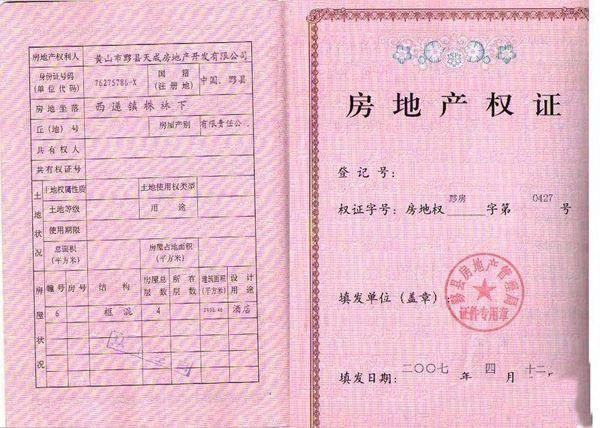 房地产权利人 黄山市黟县天成房地产开发有限公司
身份证号码
(单位代码) 76275786-X 国籍
(注册地) 中国、黟县
房地坐落 西递镇株林下
丘(地)号 房屋产别 有限责任公
共有权人
共有权证号
土地状况 土地权属性质 土地使用权类型
土地等级 用途
使用期限
总面积
(平方米) 房屋占地面积
(平方米)
房屋状况 幢号 房号 结构 房屋总层数 所在层数 建筑面积
(平方米) 设计用途
6 4 酒店
房地产权证
登记号:
权证字号: 房地权 黟房 字第 0427 号
填发单位(盖章):
黟县房地产管理局
证件专用章
填发日期: 二〇〇七 年 四 月 十二